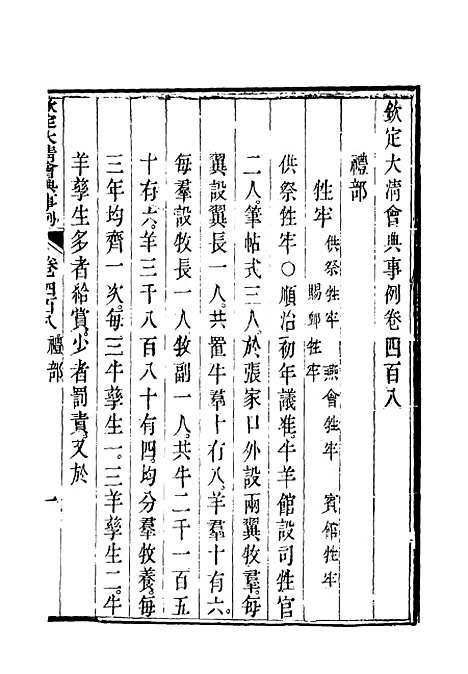 欽定大清會典事例卷四百八
禮部
牲牢 供祭牲牢 燕會牲牢 賓館牲牢
賜䘏牲牢
供祭牲牢〇順治初年議准。牛羊館設司牲官
二人。筆帖式三人。於張家口外設兩翼牧羣。每
翼設翼長一人。共置牛羣十有八。羊羣十有六。
每羣設牧長一人牧副一人。共牛二千一百五
十有六。羊三千八百八十有四。均分羣牧養。每
三年均齊一次。每三牛孳生一。三羊孳生二。牛
羊孳生多者給賞。少者罰責。又於
欽定大清會典事例 卷四百八 禮部 一